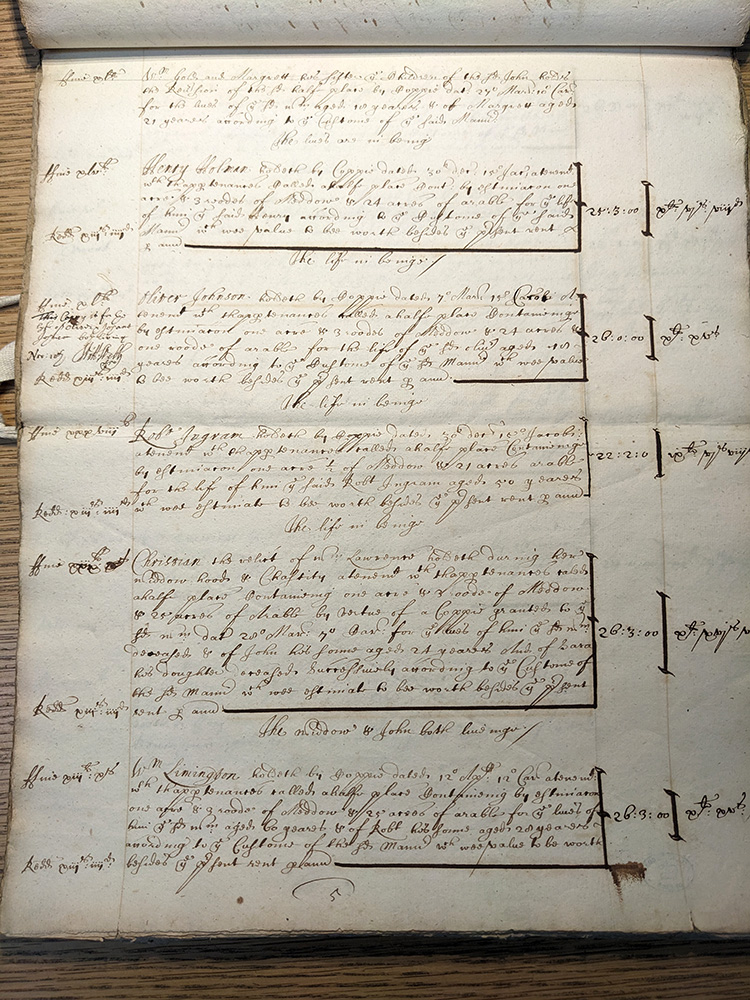 ffine
Wm Gold and Margrett his sister ye Children of the sd John holdes
the Revision of the sd half place by Coppie dat 27 Mar: 10 Car:
for the lives of ye sd Wm aged 18 yeares & of Margrett aged
21 yeares according to ye Custome of ye said Mannr
The lives are in being
ffine
Henry Holman holdeth by Coppie dated 30 Dec: 15 Jac: a tenemt
wth thappurtenances Called a half place Cont. by estimacon one
acre & 3 roodes of Meddow & 24 acres of arable for ye life
of him ye said Henry according to ye Custome of ye said
Mannr wch wee value to bee worth besides ye psent rent
p ann
25:3:00
Redd xiiis: iiiid
The life in beinge
ffine
Oliver Johnson holdeth by Coppie dated 7o Mar: 15o Jacobi A
tenemt wth thappurtenances called a half place Containeing
by estimacon one acre & 3 roodes of Meddow & 24 acres &
one roode of arable for the life of ye sd Oliver aged 48
yeares according to ye Custome of ye sd Mannr wch wee value
to bee worth besides ye psent rent p ann
26:0:00
Redd xiiis: iiiid
The life in beinge
ffine
Robt Ingram holdeth by Coppie dated 30o Dec: 15o Jacobi:
a tenemt wth thappurtenances called a half place Containeing
by estimacon one acre ½ of Meddow & 21 acres arable
for the life of him ye said Robt Ingram aged 50 yeares
wch wee estimate to bee worth besides ye psent rent p ann
22:2:0
Redd: xiiis: iiiid
The life in beinge
ffine
Christian the relict of Wm Lawrence holdeth during her
widdow hood & Chastity a tenemt wth thappurtenances called
a half place Containeing one acre & 3 roode of Meddow
& 25 acres of Arable by vertue of a Coppie granted to ye
sd Wm dat 20o Mar: 7o Car: for ye lives of him ye sd Wm
deceased & of John his sonne aged 24 yeares And of Sara
his daughter deceased Successively according to ye Custome of
the sd Mannr wch wee estimate to bee worth besides ye psent
rent p ann
26:3:00
Redd xiiis: iiiid
The widdow & John both liveinge
ffine
Wm Limington holdeth by Coppie dated 12o Apr: 12o Car: a tenemt
wth thappurtenances called a half place Containeing by estimacon
one acre & 3 roode of Meddow & 25 acres of arable for ye lives of
him ye sd Wm aged 60 yeares & of Robt his sonne aged 28 yeares
according to ye Custome of the sd Mannr wch wee value to be worth
besides ye psent rent p ann
26:3:00
Redd xiiis: iiiid
5